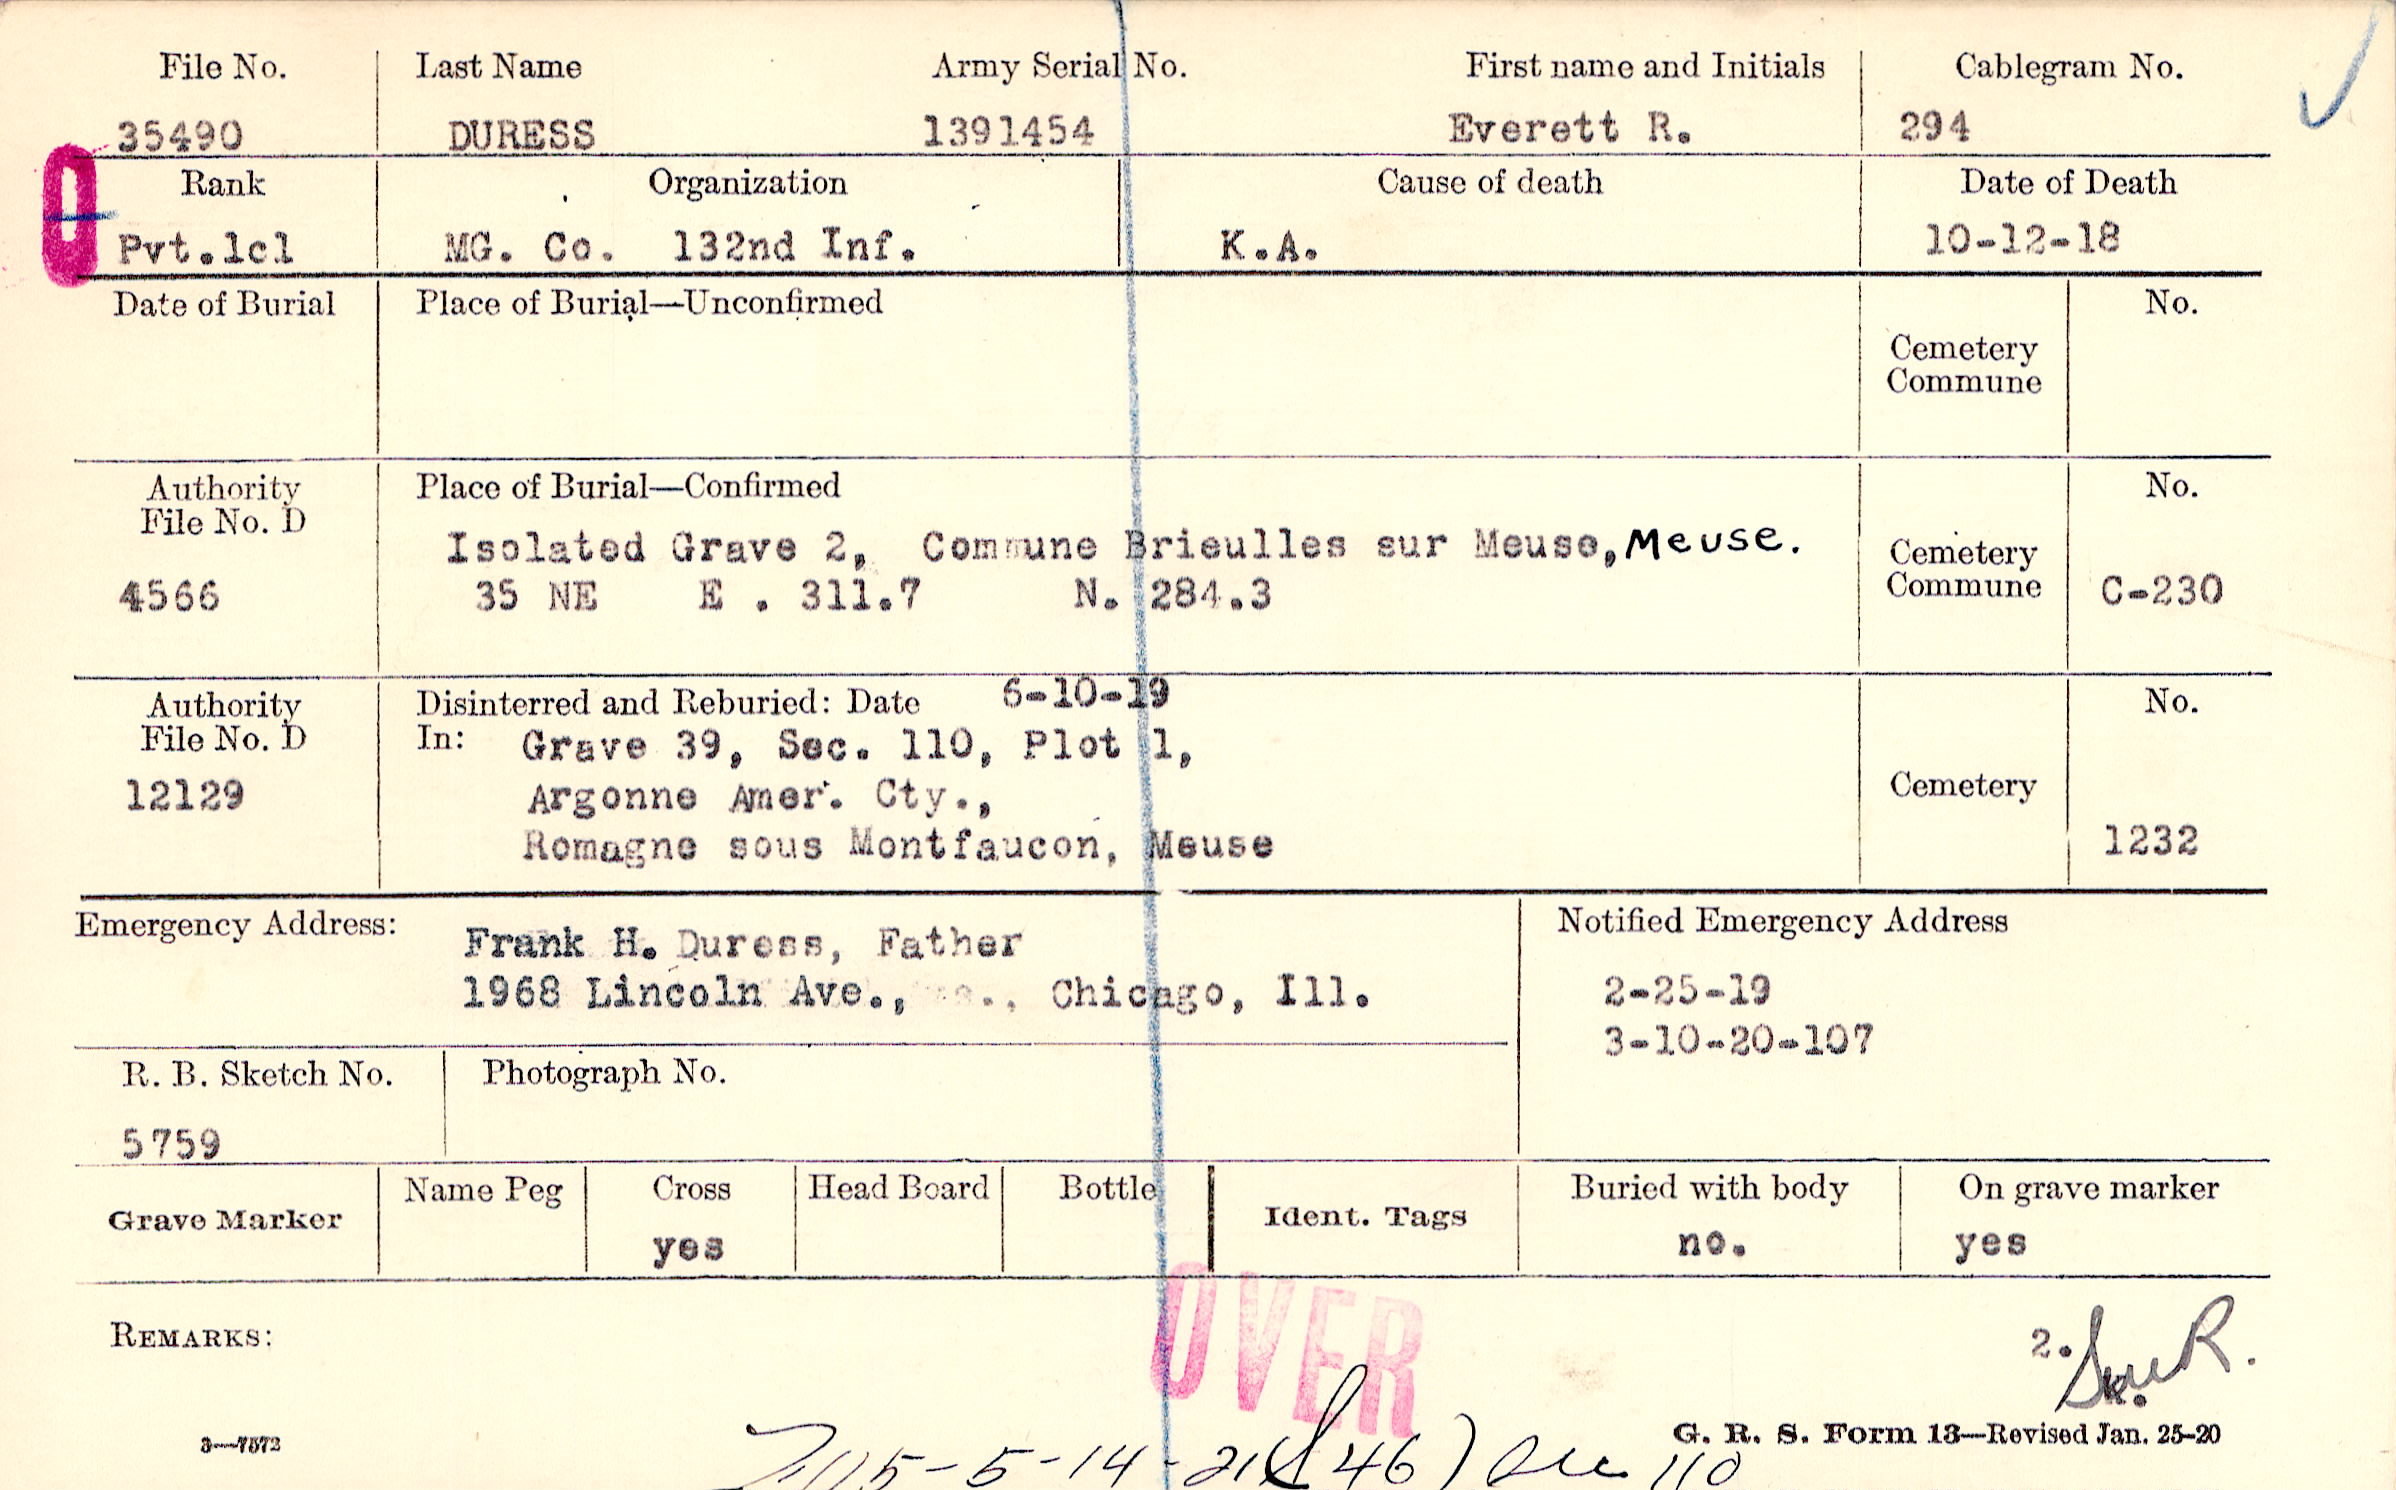 File No. Last Name Army Serial No. First name and Initials Cablegram No.
35490 DURESS 1391454 Everett R. 294
Rank Organization Cause of death Date of Death
Pvt.1cl MG. Co. 132nd Inf. K.A. 10-12-18
Date of Burial Place of Burial—Unconfirmed No.
Cemetery
Commune
Authority Place of Burial—Confirmed No.
File No. D
Isolated Grave 2, Commune Brieulles sur Meuse, Meuse. Cemetery
4566 35 NE E . 311.7 N. 284.3 Commune C-230
Authority Disinterred and Reburied: Date 6-10-19 No.
File No. D In: Grave 39, Sec. 110, Plot 1,
12129 Argonne Amer. Cty., Cemetery
Romagne sous Montfaucon, Meuse 1232
Emergency Address: Frank H. Duress, Father Notified Emergency Address
1968 Lincoln Ave., Chicago, Ill. 2-25-19
3-10-20-107
R. B. Sketch No. Photograph No.
5759
Grave Marker Name Peg Cross Head Board Bottle Ident. Tags Buried with body On grave marker
yes no. yes
OVER
REMARKS: 2.
3—7572 G. R. S. Form 13—Revised Jan. 25-20
5-14-21 46) 110